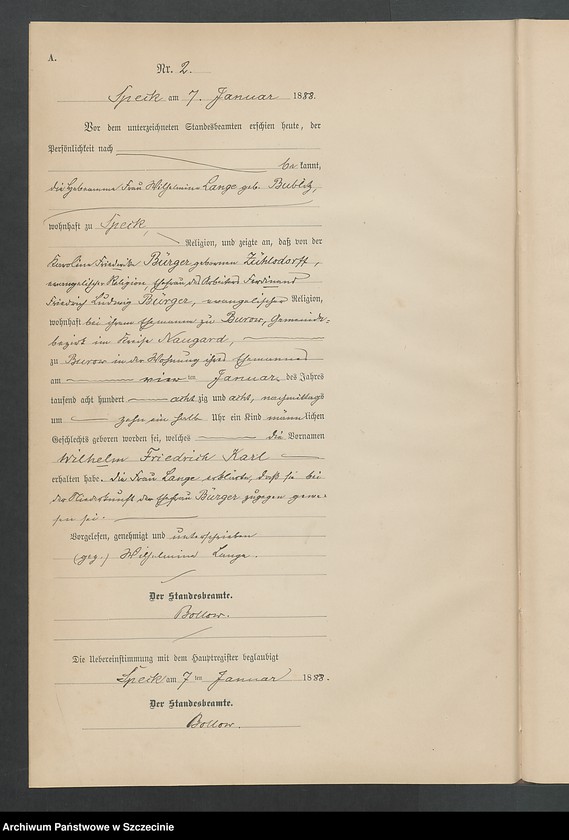 A.
Nr. 2.
Speck am 7. Januar 1888.
Vor dem unterzeichneten Standesbeamten erschien heute, der
Persönlichkeit nach
be kannt,
die Hebeamme Frau Wilhelmine Lange geb. Bublitz,
wohnhaft zu Speck,
Religion, und zeigte an, daß von der
Karoline Friederike Bürger gebornen Zühlsdorff,
evangelischer Religion, Ehefrau des Arbeiters Ferdinand
Friedrich Ludwig Bürger, evangelischer Religion,
wohnhaft bei ihrem Ehemanne zu Burow, Gemeinde-
bezirk im Kreise Naugard,
zu Burow in der Wohnung ihres Ehemannes
am vier Januar des Jahres
tausend acht hundert acht zig und acht, nachmittags
um zehn ein halb Uhr ein Kind männlichen
Geschlechts geboren worden sei, welches die Vornamen
Wilhelm Friedrich Karl
erhalten habe. Die Frau Lange erklärte, daß sie bei
der Niederkunft der Ehefrau Bürger zugegen gewe-
sen sei.
Vorgelesen, genehmigt und unterschrieben
(gez.) Wilhelmine Lange.
Der Standesbeamte.
Bollow.
Die Uebereinstimmung mit dem Hauptregister beglaubigt
Speck am 7ten Januar 1888.
Der Standesbeamte.
Bollow.
Archiwum Państwowe w Szczecinie